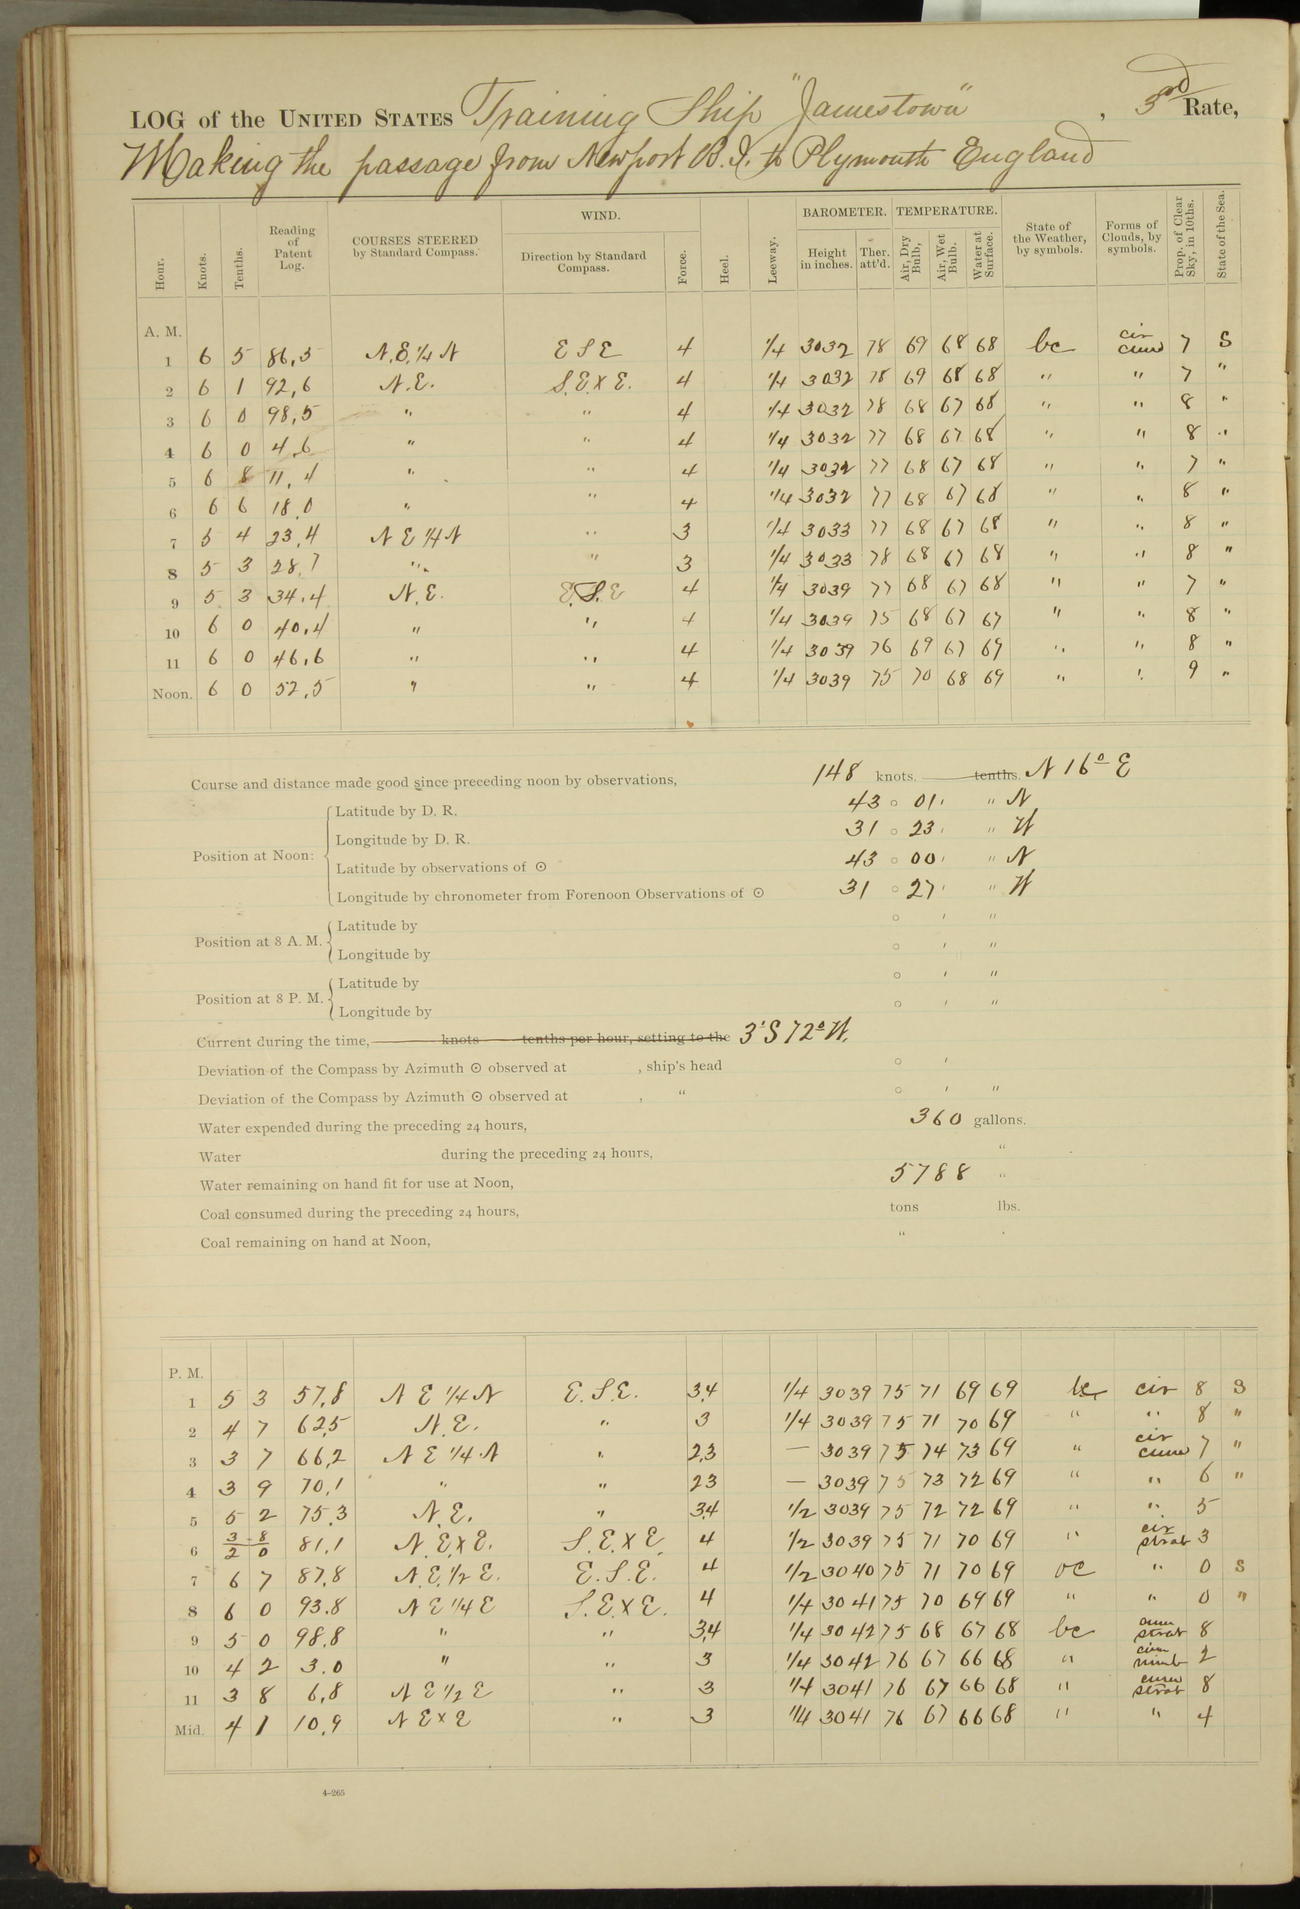 LOG of the UNITED STATES Training Ship "Jamestown", 3rd Rate,
Making the passage from Newport R.I. to Plymouth England
Hour. Knots. Tenths. Reading of Patent Log. COURSES STEERED by Standard Compass. WIND. Direction by Standard Compass. Force. Heel. Leeway. BAROMETER. Height in inches. Ther. att'd. TEMPERATURE. Air, Dry Bulb, Air, Wet Bulb. Water at Surface. State of the Weather, by symbols. Forms of Clouds, by symbols. Prop. of Clear Sky, in 10ths. State of the Sea.
A. M.
1 6 5 86,5 N.E. 1/4 N E S E 4 1/4 3032 78 69 68 68 bc cir cum 7 S
2 6 1 92,6 N.E. S.E. X E. 4 1/4 3032 78 69 68 68 " " 7 "
3 6 0 98,5 " " 4 1/4 3032 78 68 67 68 " " 8 "
4 6 0 4,6 " " 4 1/4 3032 77 68 67 68 " " 8 "
5 6 8 11,4 " " 4 1/4 3032 77 68 67 68 " " 7 "
6 6 6 18,0 " " 4 1/4 3032 77 68 67 68 " " 8 "
7 5 4 23,4 N E 1/4 N " 3 1/4 3033 77 68 67 68 " " 8 "
8 5 3 28,7 " " 3 1/4 3033 78 68 67 68 " " 8 "
9 5 3 34,4 N.E. E.S.E 4 1/4 3039 77 68 67 68 " " 7 "
10 6 0 40,4 " " 4 1/4 3039 75 68 67 67 " " 8 "
11 6 0 46,6 " " 4 1/4 3039 76 69 67 69 " " 8 "
Noon. 6 0 52,5 " " 4 1/4 3039 75 70 68 69 " " 9 "
Course and distance made good since preceding noon by observations, 148 knots. tenths. N 16° E
Position at Noon:
Latitude by D. R. 43 ° 01 ' " N
Longitude by D. R. 31 ° 23 ' " W
Latitude by observations of ☉ 43 ° 00 ' " N
Longitude by chronometer from Forenoon Observations of ☉ 31 ° 27 ' " W
Position at 8 A. M.
Latitude by ° ' "
Longitude by ° ' "
Position at 8 P. M.
Latitude by ° ' "
Longitude by ° ' "
Current during the time, knots tenths per hour, setting to the 3' S 72° W.
Deviation of the Compass by Azimuth ☉ observed at , ship's head ° '
Deviation of the Compass by Azimuth ☉ observed at , " ° ' "
Water expended during the preceding 24 hours, 360 gallons.
Water during the preceding 24 hours, "
Water remaining on hand fit for use at Noon, 5788 "
Coal consumed during the preceding 24 hours, tons lbs.
Coal remaining on hand at Noon, "
P. M.
1 5 3 57,8 N E 1/4 N E.S.E. 3,4 1/4 3039 75 71 69 69 bc cir 8 S
2 4 7 62,5 N.E. " 3 1/4 3039 75 71 70 69 " " 8 "
3 3 7 66,2 N E 1/4 N " 2,3 — 3039 75 74 73 69 " cir cum 7 "
4 3 9 70,1 " " 23 — 3039 75 73 72 69 " " 6 "
5 5 2 75,3 N.E. " 3,4 1/2 3039 75 72 72 69 " " 5
6 3/2 8/0 81,1 N.E. X E. S.E. X E. 4 1/2 3039 75 71 70 69 " cir strat 3
7 6 7 87,8 N.E. 1/2 E. E.S.E. 4 1/2 3040 75 71 70 69 oc " 0 S
8 6 0 93,8 N E 1/4 E S.E. X E. 4 1/4 3041 75 70 69 69 " " 0 "
9 5 0 98,8 " " 3,4 1/4 3042 75 68 67 68 bc cum strat 8
10 4 2 3.0 " " 3 1/4 3042 76 67 66 68 " nimb 2
11 3 8 6,8 N E 1/2 E " 3 1/4 3041 76 67 66 68 " cum strat 8
Mid. 4 1 10,9 N E X E " 3 1/4 3041 76 67 66 68 " " 4
4–265